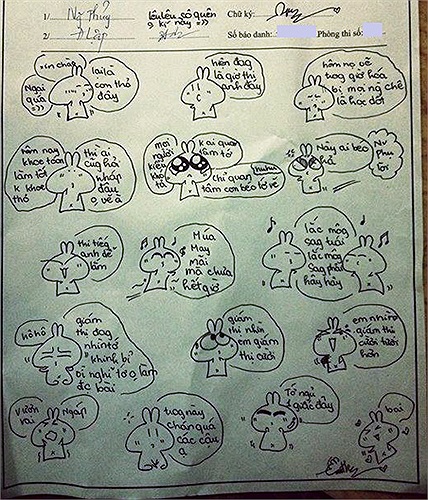 1/ Ng Thủy
2/
lêu lêu số quên
kì này =))
Chữ ký:
Số báo danh:
Phòng thi số:
xin chào
Ngại
quá =))
lại là
con thỏ
đây
hẹn đag
là giờ thi
anh đấy
hôm nọ vẽ
trog giờ hóa
bị mọi ng chê
là học dốt
hôm nay
khoe toán
làm tốt
k khoe
thỏ
thì ai
cũg hỏi
nháp
đâu
o vẽ à
mọi
người
kiểu
k ai quan
tâm tớ
huhu
chỉ quan
tâm con béo tớ vẽ
Này ai béo
hả
Nv
phụ
lời
thi tiếg
anh dễ
lắm
Múa
May
mãi
mà chưa
hết giờ
lắc môg
sag trái
lắc môg
sag phải
hây hây
hô hô
giám
thị đag
nhìn tớ
khinh bỉ
vì nghĩ tớ o làm
đc bài
giám
thị nhìn
em giám
thị cười
em nhìn
giám thị
cười tươi
hơn
Vươn
vai
Ngáp
trog này
chán quá
các cậu
ạ
Tớ ngủ
1 giấc đây
bai